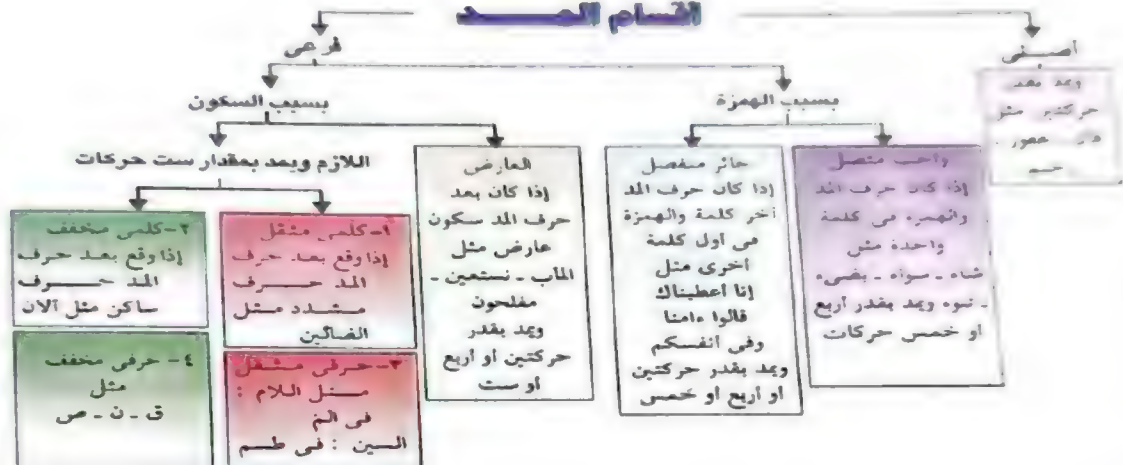 اقسام المد
أصلى
فرعى
ويمد بقدر
حركتين مثل
بسبب الهمزة
بسبب السكون
واجب متصل
إذا كان حرف المد
والهمزة فى كلمة
واحدة مثل
شاء - سواء - يضىء
- نبوء ويمد بقدر أربع
او خمس حركات
جائز منفصل
إذا كان حرف المد
آخر كلمة والهمزة
فى أول كلمة
أخرى مثل
إنا أعطيناك
قالوا ءامنا
وفى أنفسكم
ويمد بقدر حركتين
او أربع او خمس
العارض
إذا كان بعد
حرف المد سكون
عارض مثل
المآب - نستعين -
مفلحون
ويمد بقدر
حركتين او أربع
او ست
اللازم ويمد بمقدار ست حركات
١- كلمى مثقل
إذا وقع بعد حرف
المد حرف
مشدد مثل
الضالين
٢- كلمى مخفف
إذا وقع بعد حرف
المد حرف
ساكن مثل آلآن
٣- حرفى مثقل
مثل اللام :
فى الم
السين : فى طسم
٤- حرفى مخفف
مثل
ق - ن - ص